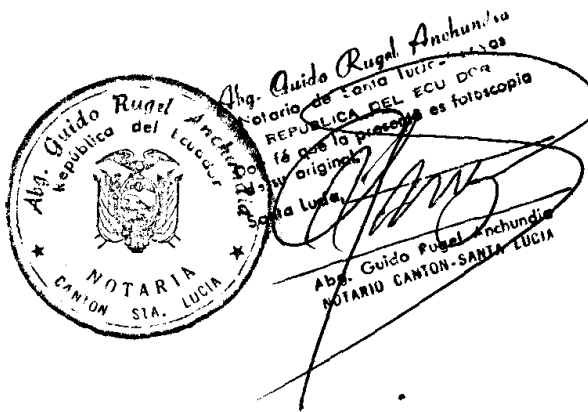 Abg. Guido Rugel Anchundia
República del Ecuador
NOTARIA
CANTON STA. LUCIA
Abg. Guido Rugel Anchundia
Notario de Santa Lucia
REPUBLICA DEL ECUDOR
fé que la presente es fotoscopia
su original
Santa Lucia,
Abg. Guido Rugel Anchundia
NOTARIO CANTON-SANTA LUCIA